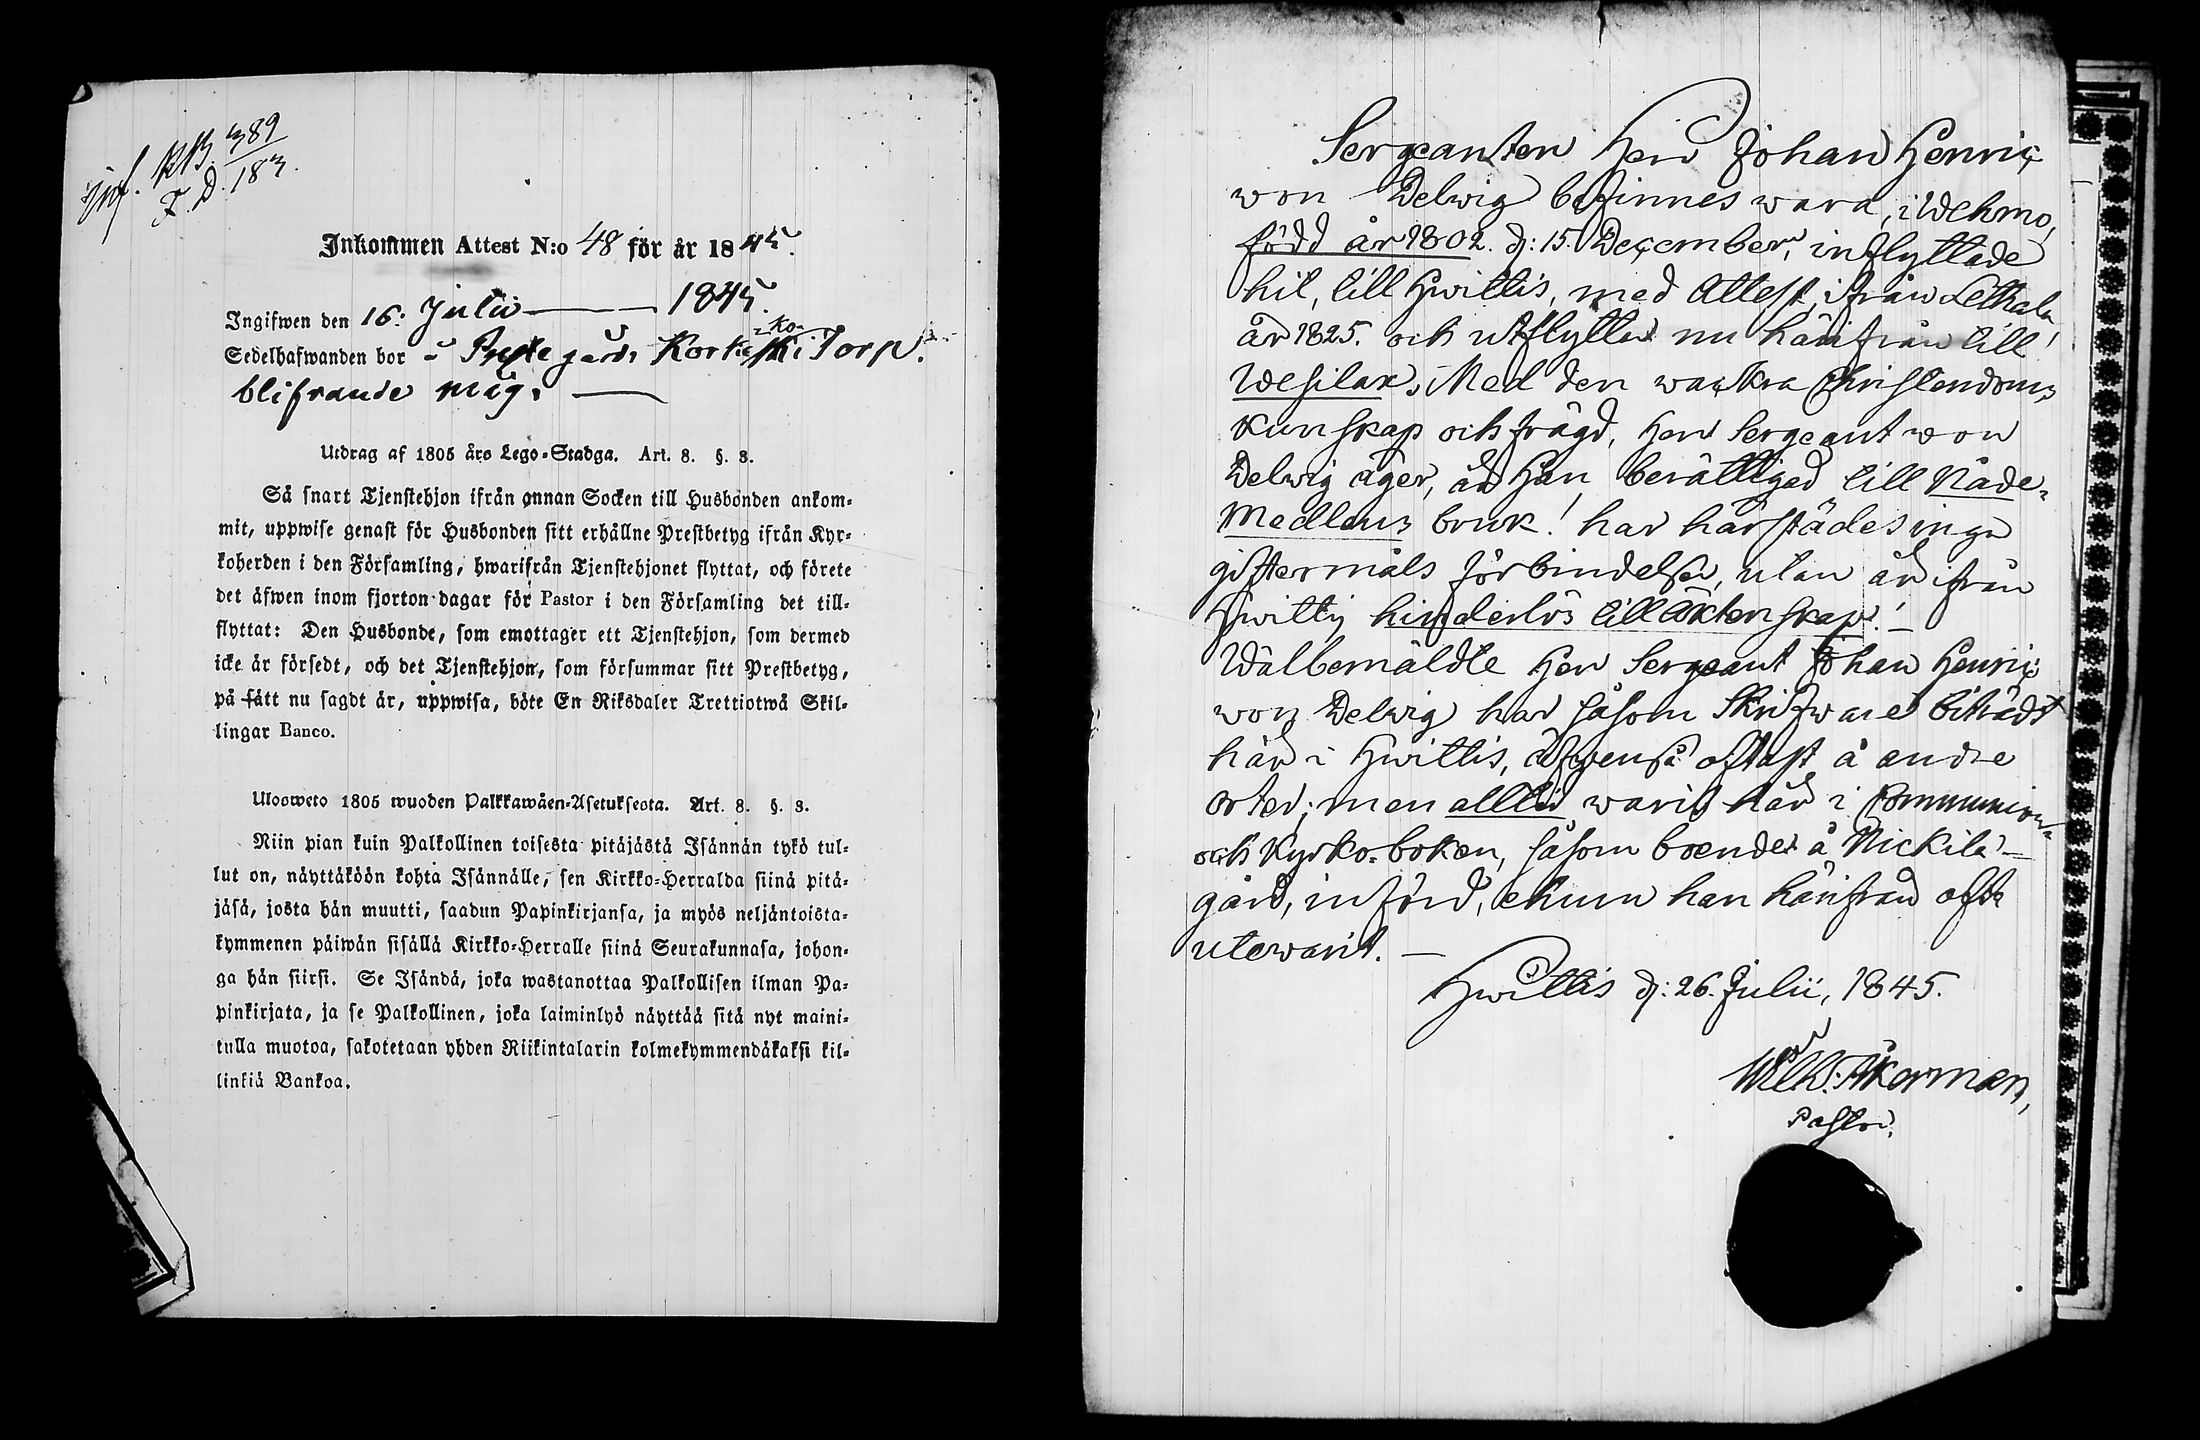 inf. KB. 389
F. D. 183.
Inkommen Attest N:o 48 för år 1845.
Ingifwen den 16: Julii — 1845.
Sedelhafwanden bor i gårds Torp.
blifvande måg. —
Utdrag af 1805 års Lego-Stadga. Art. 8. §. 3.
Så snart Tjenstehjon ifrån annan Socken till Husbonden ankom-
mit, uppwise genast för Husbonden sitt erhållne Prestbetyg ifrån Kyr-
koherden i den Församling, hwarifrån Tjenstehjonet flyttat, och förete
det äfwen inom fjorton dagar för Pastor i den Församling det till-
flyttat: Den Husbonde, som emottager ett Tjenstehjon, som dermed
icke är försedt, och det Tjenstehjon, som försummar sitt Prestbetyg,
på sätt nu sagdt är, uppwisa, böte En Riksdaler Trettiotwå Skil-
lingar Banco.
Ulosweto 1805 wuoden Palkkawäen-Asetuksesta. Art. 8. §. 3.
Niin pian kuin Palkollinen toisesta pitäjästä Isännän tykö tul-
lut on, näyttäköön kohta Isännälle, sen Kirkko-Herralda siinä pitä-
jäsä, josta hän muutti, saadun Papinkirjansa, ja myös neljäntoista-
kymmenen päiwän sisällä Kirkko-Herralle siinä Seurakunnasa, johon-
ga hän siirsi. Se Isändä, joka wastanottaa Palkollisen ilman Pa-
pinkirjata, ja se Palkollinen, joka laiminlyö näyttää sitä nyt maini-
tulla muotoa, sakotetaan yhden Riikintalarin kolmekymmendäkaksi kil-
linkiä Bankoa.
Sergeanten Herr Johan Henric
von Delwig befinnes wara, i Wehmo,
född år 1802. d: 15. December, inflyttade
hit, till Hwittis, med Attest, ifrån Lethala
år 1825. och utflyttar nu härifrån till
Wesilax. Med den wackra Christendoms
kunskap och frägd, Herr Sergeant von
Delwig äger, är Han berättigad till Nåde-
Medlens bruk! har härstädes inga
giftermåls förbindelser, utan är ifrån
Hwittis hinderlös till Äktenskap! —
Wälbemäldte Herr Sergeant Johan Henric
von Delwig har såsom Skrifware biträdt
här i Hwittis, äfwenså oftast å andre
orter; men alltid warit här i Communion-
och Kyrko-boken, såsom boende å Nickilä —
gård, införd, ehuru han härifrån ofta
utewarit. —
Hwittis d: 26. Julii, 1845.
Wilh: Åkerman,
Pastor.